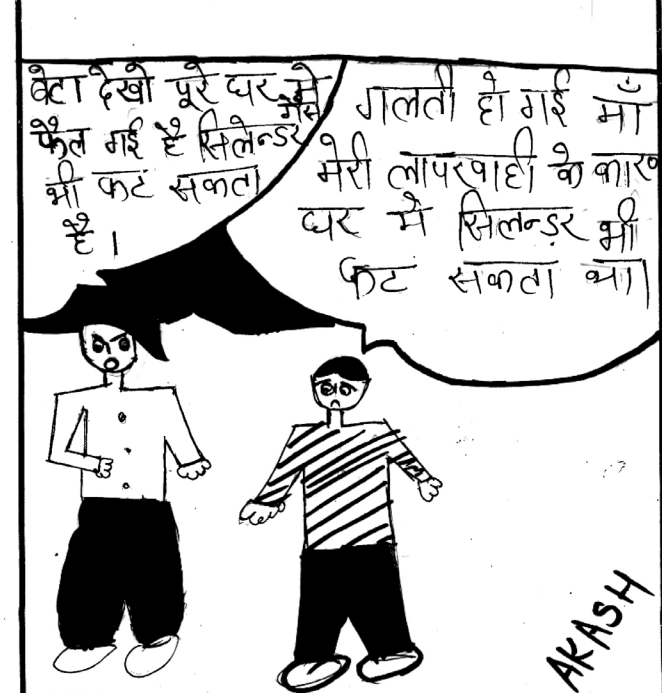 बेटा देखो पूरे घर मे
गैस
फैल गई है सिलेन्डर
भी फट सकता
है।
गलती हो गई माँ
मेरी लापरवाही के कारण
घर मे सिलन्ड़र भी
फट सकता था।
AKASH